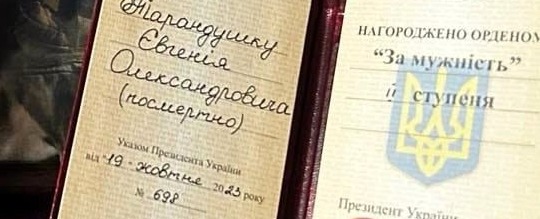 Тарандушку
Євгенія
Олександровича
(посмертно)
Указом Президента України
від "19" жовтня 2023 року
№ 698
НАГОРОДЖЕНО ОРДЕНОМ
"За мужність"
ІІ ступеня
Президент України